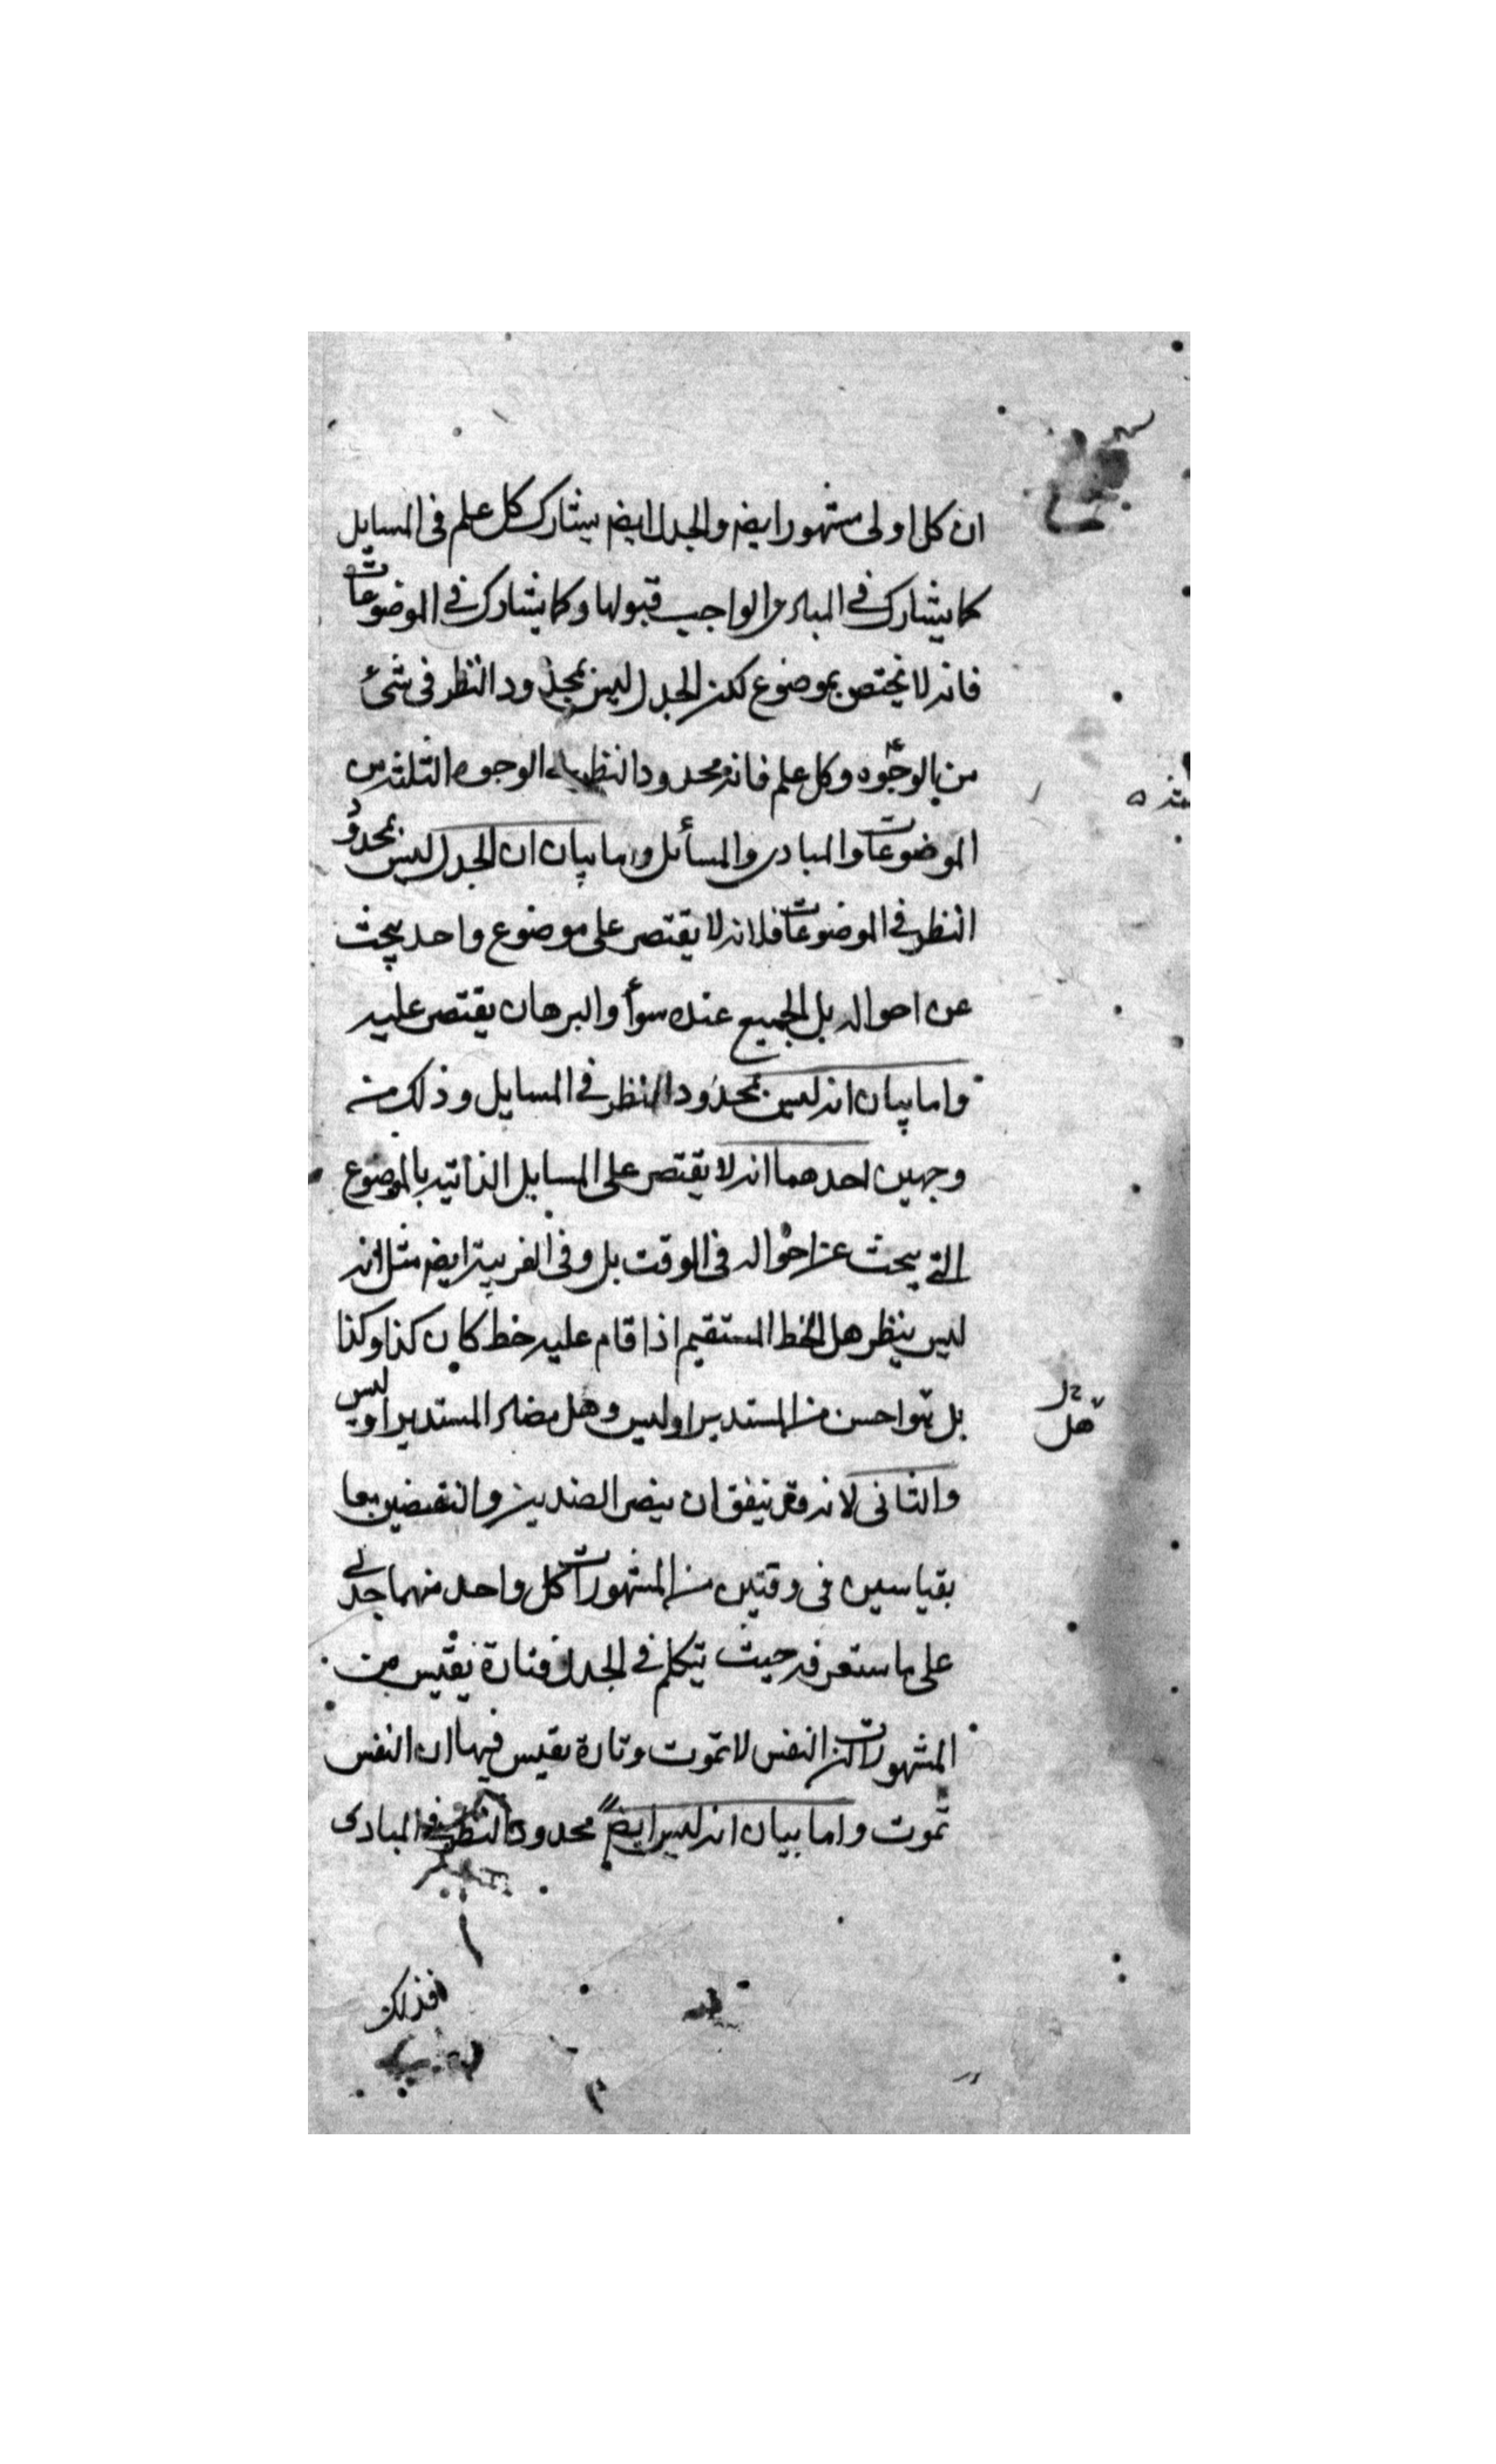 ان كل اولى مشهور ايضم والجدل ايضم يشارك كل علم فى المسايل
كما يشارك فى المبادى الواجب قبولها وكما يشارك فى الموضوعات
فانه لا يختص بموضوع لكن الجدل ليس بمحدود النظر فى شئ
من الوجوه وكل علم فانه محدود النظر الوجوه الثلثه من
الموضوعات والمبادى والمسائل واما بيان ان الجدل ليس بمحدود
النظر فى الموضوعات فلانه لا يقتصر على موضوع واحد يبحث
عن احواله بل الجميع عنده سوأ والبرهان يقتصر عليه
واما بيان انه ليس بمحدود النظر فى المسايل وذلك من
وجهين احدهما انه لا يقتصر على المسايل الذاتيه بالموضوع
التى يبحث عن احواله فى الوقت بل وفى الغريبة ايضم مثل انه
ليس ينظر هل الخط المستقيم اذا قام عليه خط كان كذا وكذا
بل هو احسن من المستدير او ليس وهل مضاد المستدير او ليس
هل
والثانى لانه قد يتفق ان ينصر الضدين والنقيضين معا
بقياسين فى وقتين من المشهورات كل واحد منهما جدلى
على ما ستعرفه حيث يتكلم فى الجدل فتارة يقيس من
المشهورات ان النفس لا تموت وتارة يقيس فيها ان النفس
تموت واما بيان انه ليس ايضم محدود النظر فى المبادى
فذلك